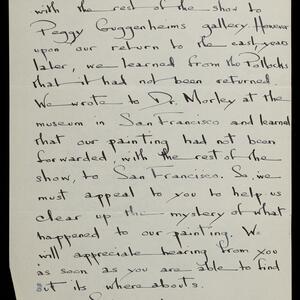 with the rest of the show to
Peggy Guggenheims gallery. However
upon our return to the east, years
later, we learned from the Pollocks
that it had not been returned.
We wrote to Dr. Morley at the
museum in San Francisco and learned
that our painting had not been
forwarded, with the rest of the
show, to San Francisco. So, we
must appeal to you to help us
clear up the mystery of what
happened to our painting. We
will appreciate hearing from you
as soon as you are able to find
out its where abouts.